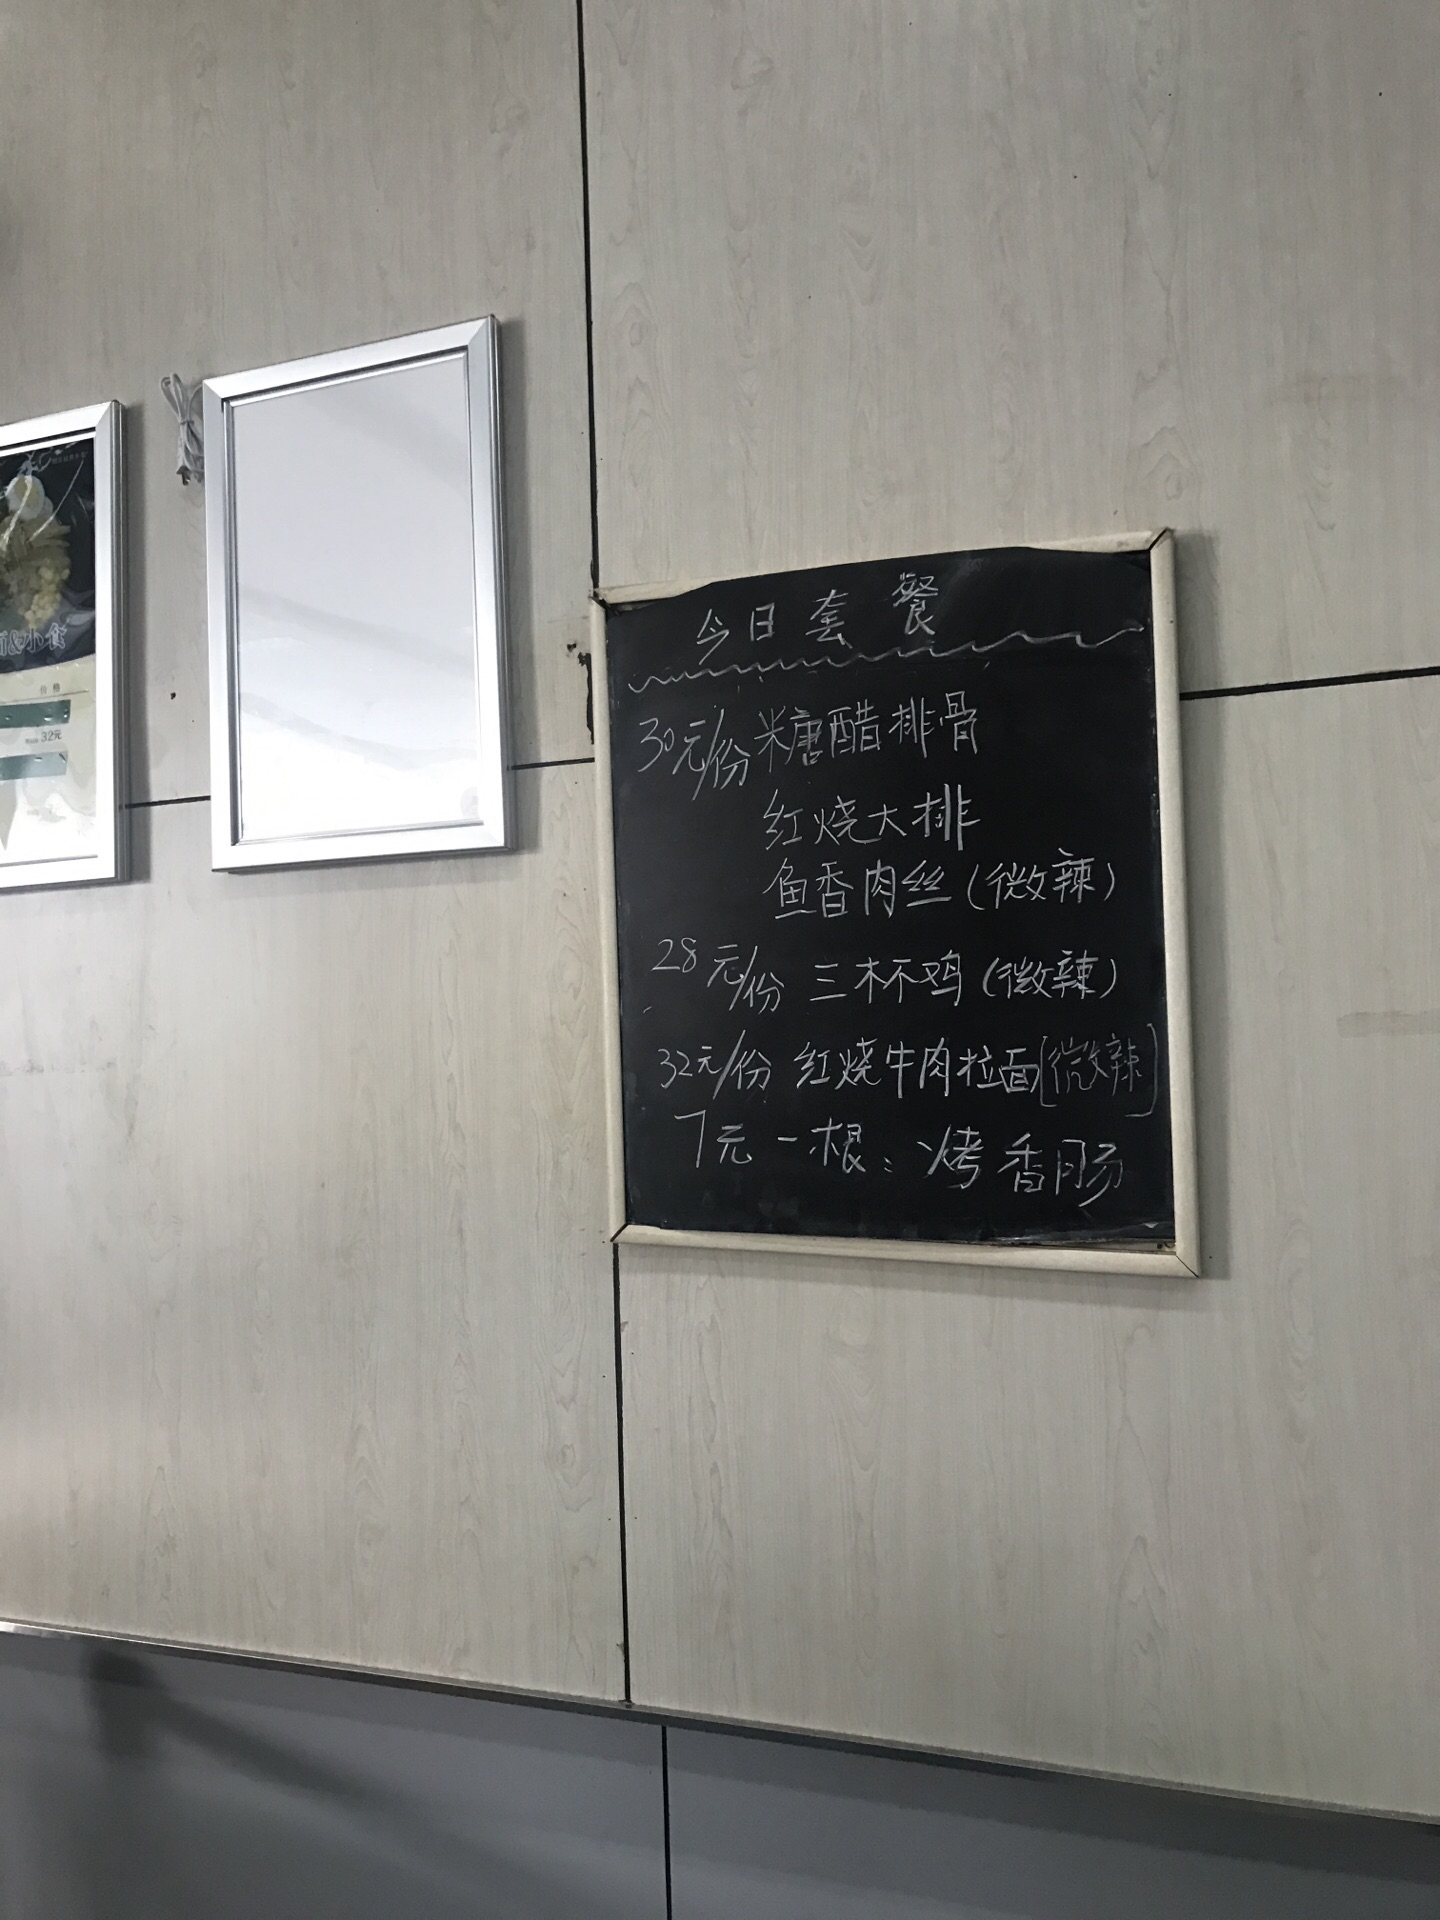 &小食
价格
32元
今日套餐
30元/份 糖醋排骨
红烧大排
鱼香肉丝(微辣)
28元/份 三杯鸡(微辣)
32元/份 红烧牛肉拉面[微辣]
7元一根: 烤香肠